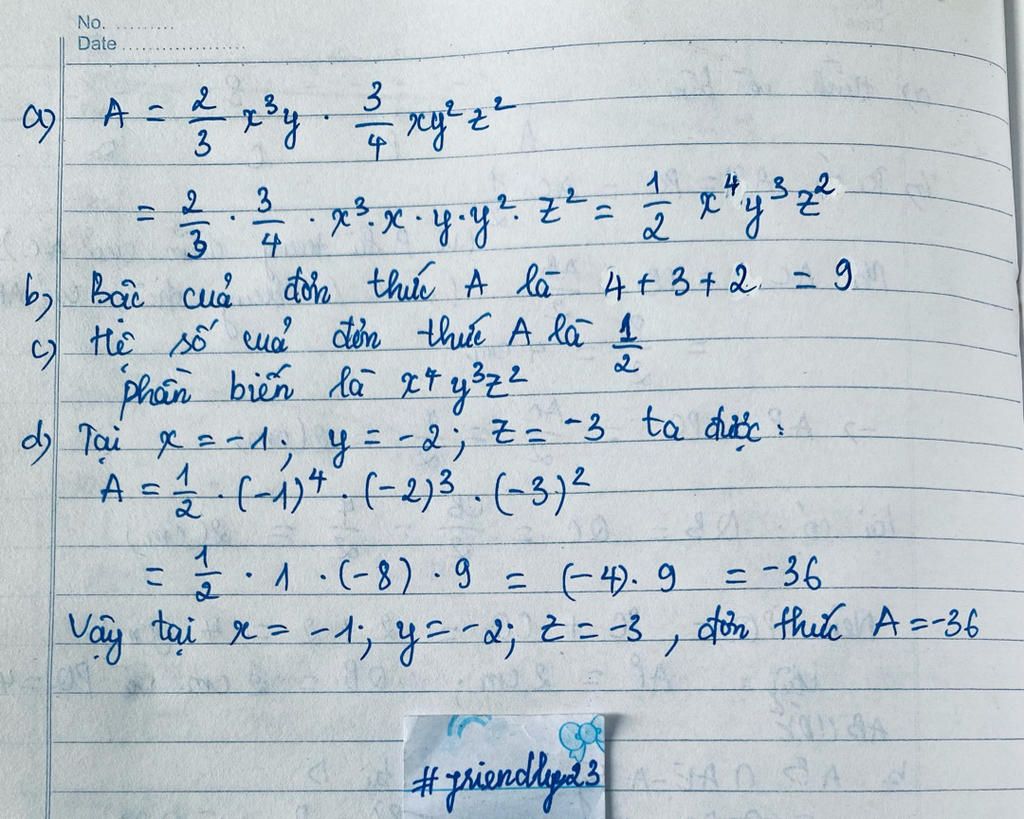 No. .........
Date ...................
a) A = 2/3 x³y · 3/4 xy²z²
= 2/3 · 3/4 · x³·x·y·y²·z² = 1/2 x⁴y³z²
b) Bậc của đơn thức A là 4 + 3 + 2 = 9
c) Hệ số của đơn thức A là 1/2
phần biến là x⁴y³z²
d) Tại x = -1; y = -2; z = -3 ta được:
A = 1/2 · (-1)⁴ · (-2)³ · (-3)²
= 1/2 · 1 · (-8) · 9 = (-4) · 9 = -36
Vậy tại x = -1; y = -2; z = -3, đơn thức A = -36
#friendly23